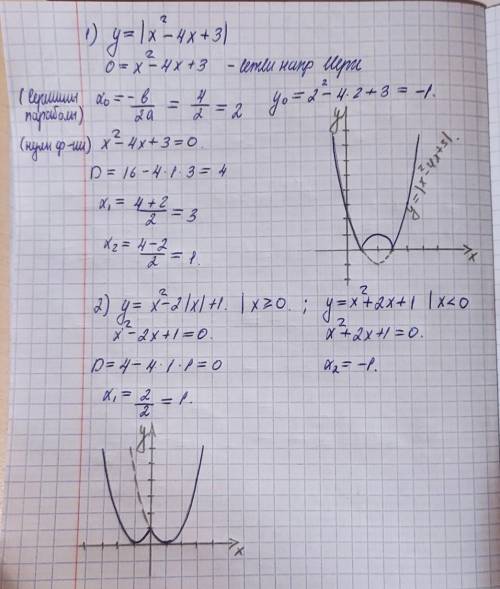 1) y = |x² - 4x + 3|
0 = x² - 4x + 3 - ветви напр вверх
(вершины параболы) x₀ = -b/2a = 4/2 = 2 y₀ = 2² - 4·2 + 3 = -1.
(нули ф-ии) x² - 4x + 3 = 0.
D = 16 - 4·1·3 = 4
x₁ = (4+2)/2 = 3
x₂ = (4-2)/2 = 1.
y
x
y = |x² - 4x + 3|
2) y = x² - 2|x| + 1. | x ≥ 0. ; y = x² + 2x + 1 | x < 0
x² - 2x + 1 = 0. x² + 2x + 1 = 0.
D = 4 - 4·1·1 = 0 x₂ = -1.
x₁ = 2/2 = 1.
y
x